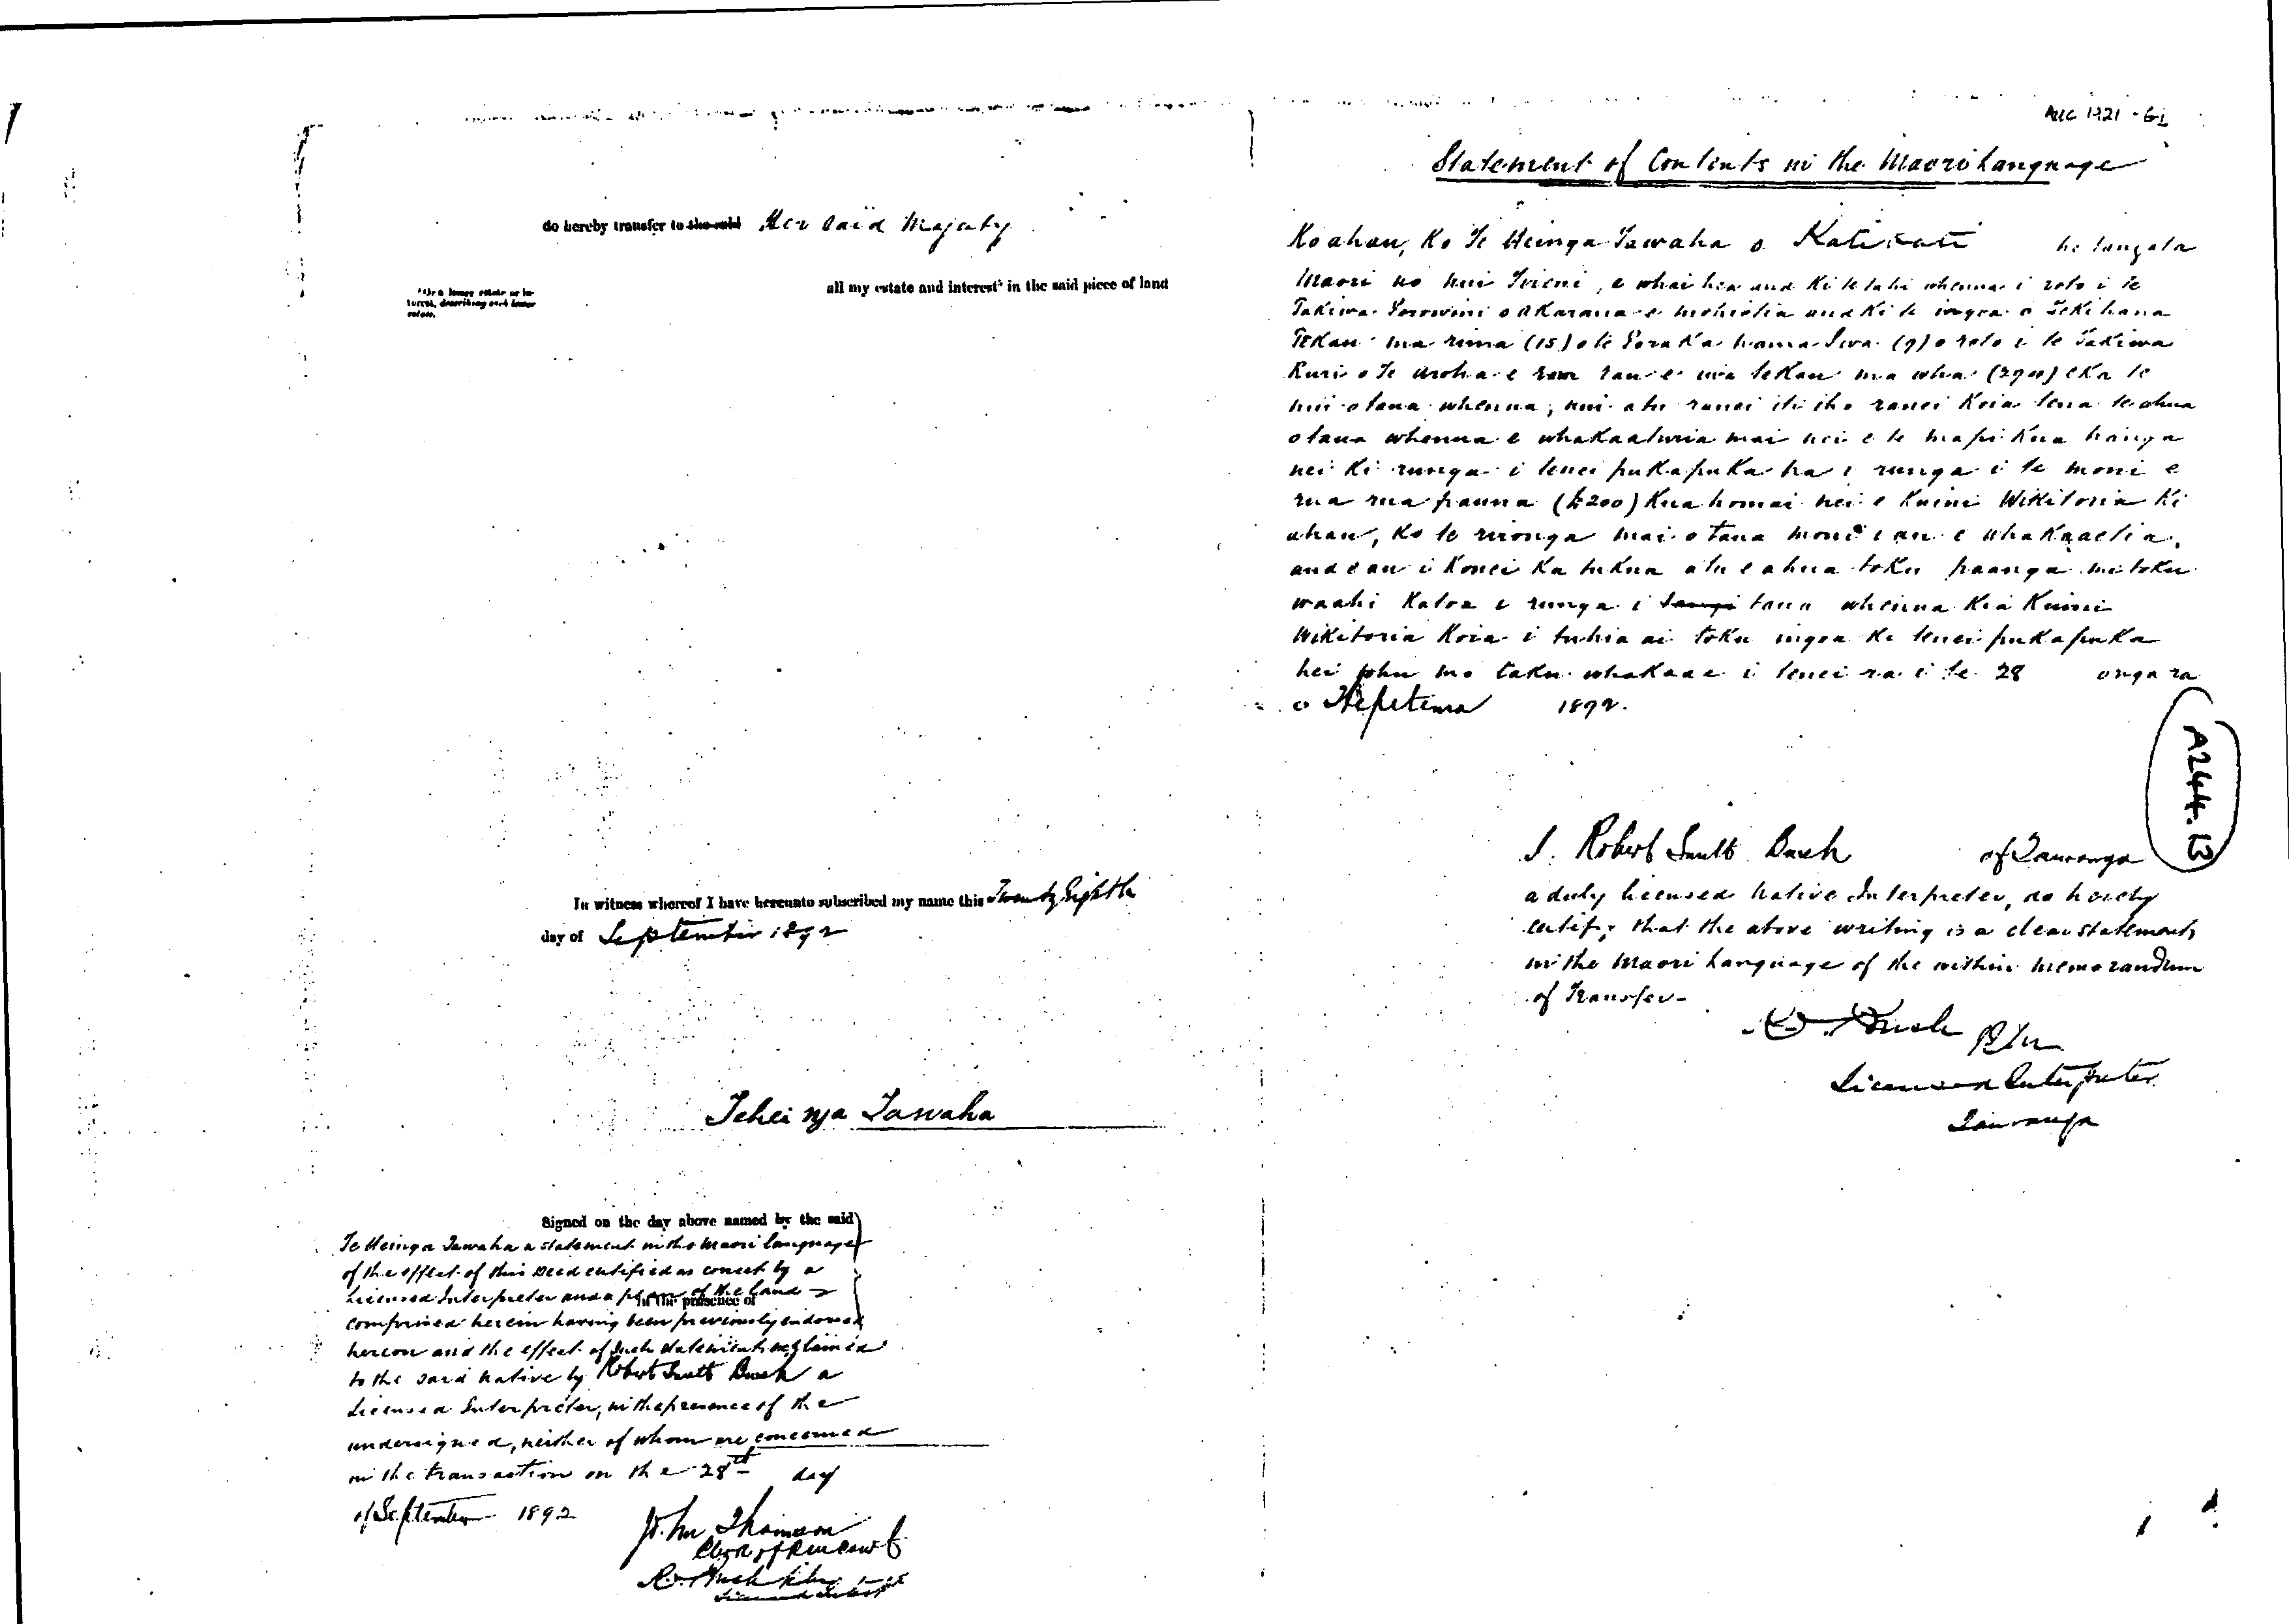 do hereby transfer to the said Her said Majesty
all my estate and interest* in the said piece of land
*Or a lesser estate or in-
terest, describing such lesser
estate.
In witness whereof I have hereunto subscribed my name this Twenty Eighth
day of September 1892
Teheinga Tawaha
Signed on the day above named by the said
Te Heinga Tawaha a statement in the Maori language
of the effect of this Deed certified as correct by a
Licensed Interpreter and a plan of the land
in the presence of
comprised herein having been previously endorsed
hereon and the effect of such statement explained
to the said native by Robert Smelt Bush a
Licensed Interpreter, in the presence of the
undersigned, neither of whom are concerned
in the transaction on the 28th day
of September 1892
John Thomson
Clerk of R M Court
R. S. Bush R.M.
Licensed Interpreter
AUC 1921 - G1
Statement of Contents in the Maori Language
Ko ahau, Ko Te Heinga Tawaha o Katikati he tangata
Maori no Nui Tireni, e whai hea ana ki tetahi whenua i roto i te
Takiwa Porowini o Akarana e mohiotia ana ki te ingoa o Tekihana
Tekau ma rima (15) o te Poraka nama Iwa (9) o roto i te Takiwa
Ruri o Te Aroha e rua rau e iwa tekau ma wha (294) eka te
nui o taua whenua, nui atu ranei iti iho ranei Koia tena te ahua
o taua whenua e whakaaturia mai nei e te mapi kua hanga
nei ki runga i tenei pukapuka na i runga i te moni e
rua rau pauna (£200) kua homai nei e Kuini Wikitoria ki
ahau, ko te rironga mai o taua moni i au e whakaaetia
ana e au i konei ka tukua atu e ahau toku paanga me toku
waahi katoa i runga i taua whenua kia Kuini
Wikitoria Koia i tuhia ai toku ingoa ki tenei pukapuka
hei tohu mo taku whakaae i tenei ra i te 28 onga ra
o Hepetema 1892.
A244. 13
I, Robert Smelt Bush of Tauranga
a duly licensed Native Interpreter, do hereby
certify that the above writing is a clear statement
in the Maori Language of the within memorandum
of Transfer-
R. S. Bush R.M.
Licensed Interpreter
Tauranga